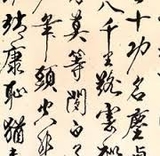 十功名塵
八千里路雲
莫等閒白了
年頭空悲
靖康恥猶